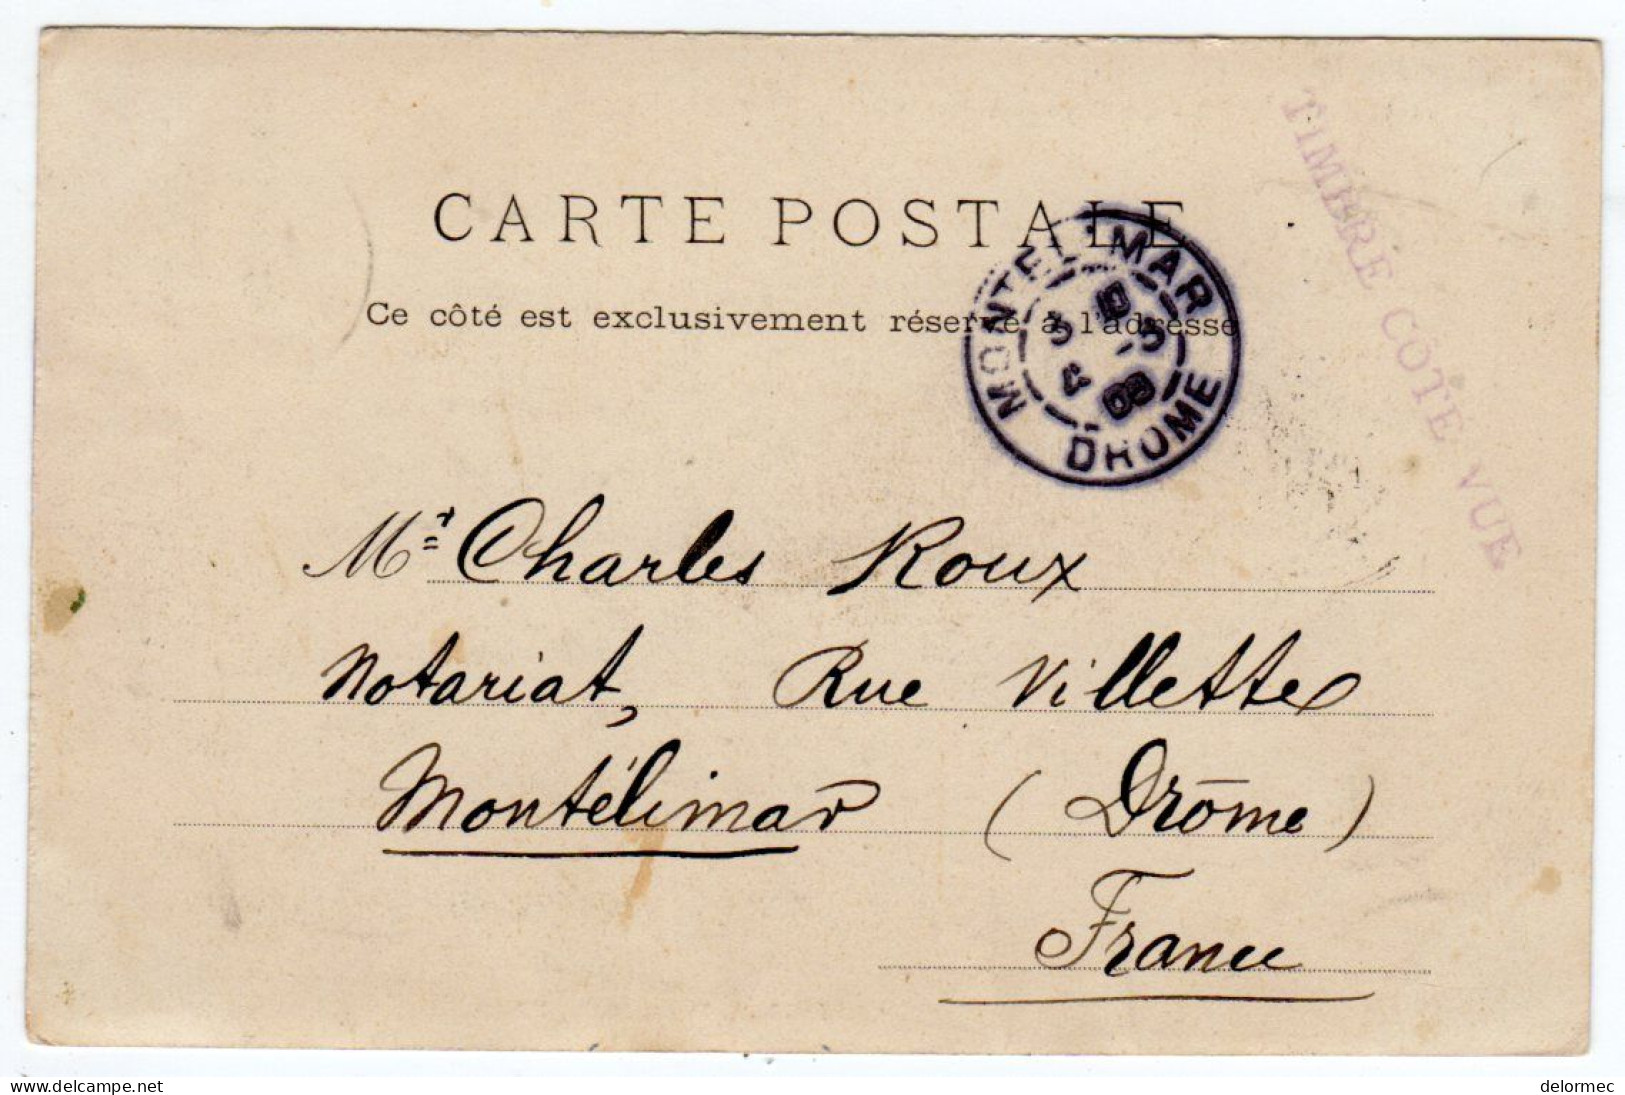 CARTE POSTALE
Ce côté est exclusivement réservé à l'adresse
TIMBRE CÔTÉ VUE
MONTELIMAR
DROME
Mr Charles Roux
Notariat, Rue Villette
Montélimar (Drôme)
France
www.delcampe.net
delormec